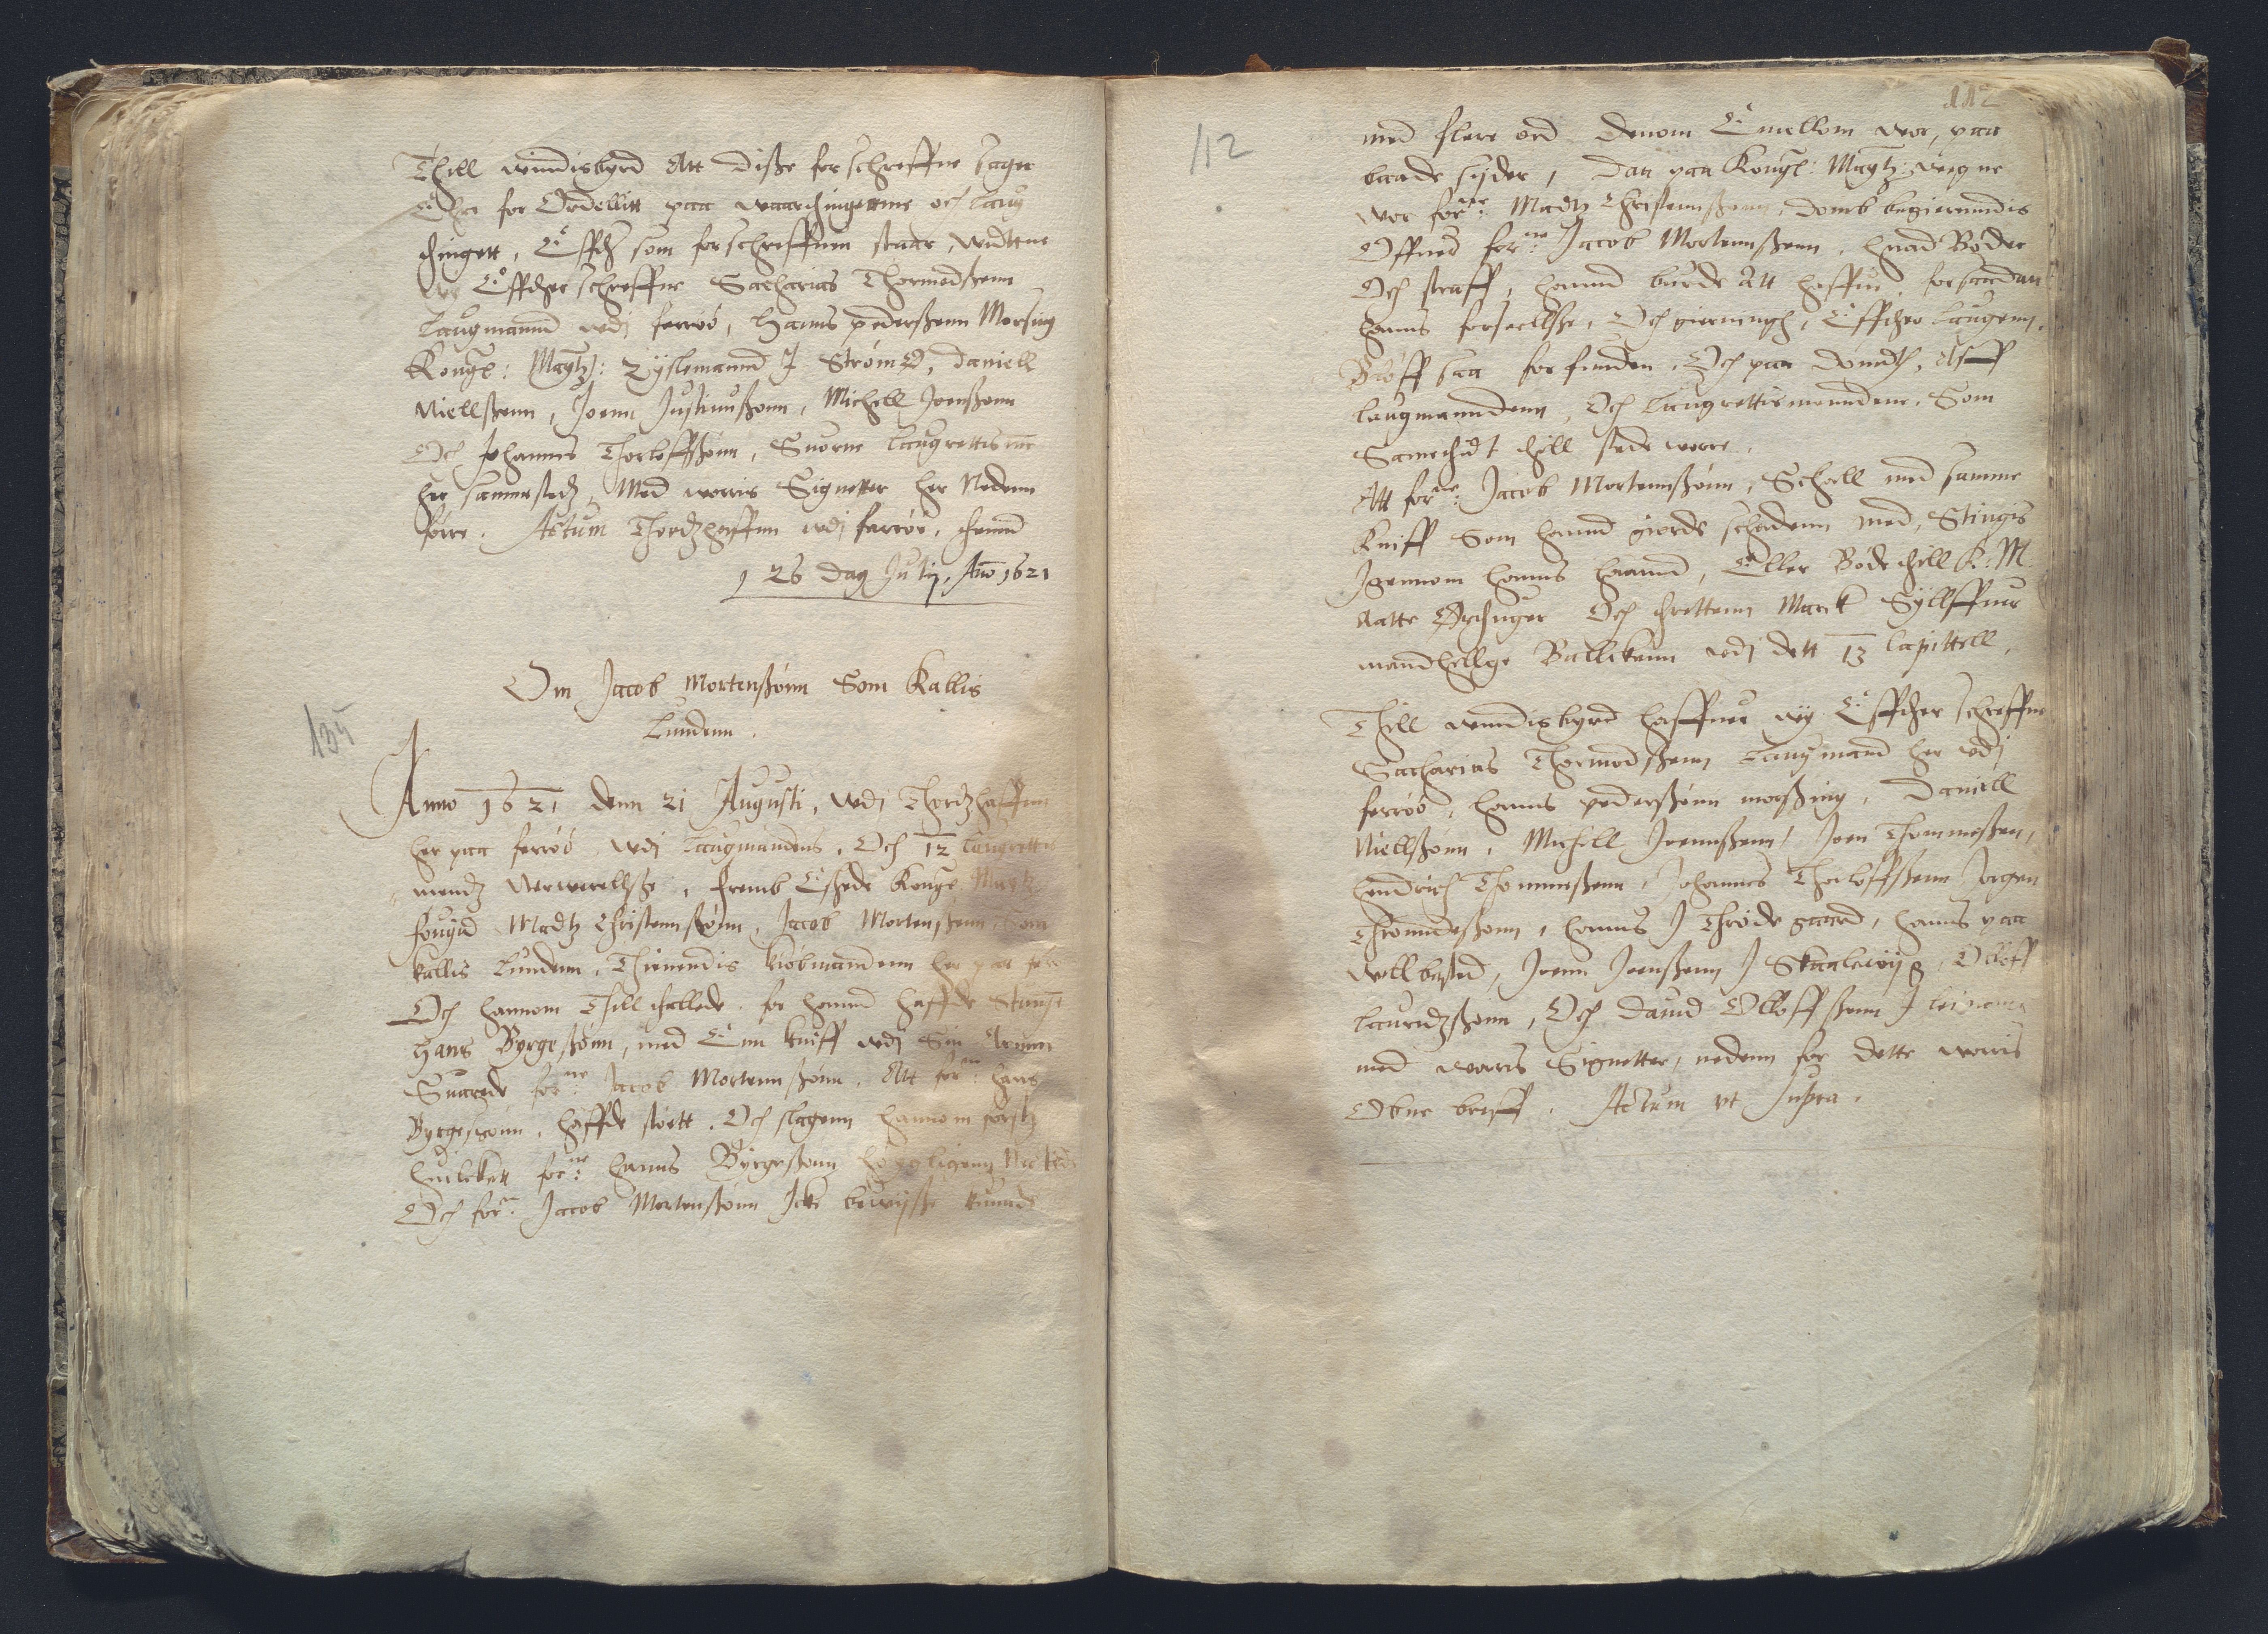 Thill windisbyrd Att disße forschreffne sager
Ehr for Ordellitt paa waarthingerne och laug
thingett, Effther som forschreffuen staar, widttne
wy Effther schreffne Sacharias Thormodßenn
Laugmannd wdj ferröö, Hanns pederßenn Morsing
Kongl: Maytz: Sÿslemannd J Strömø, Daniell
Niellßenn, Joenn Justinußonn, Michell Joenßonn
Och Johannes Thorloffßönn, Suorne laugrettis
her sammesteds, Med worris Signetter her Nedenn
förre. Actum Thordzhaffnn wdj ferröö, thennd
26 Dag July, Ano 1621
Om Jacob Mortenßönn Som Kallis
Lundenn.
135
Anno 1621 denn 21 Augusti, wdj Thordzhaffnn
her paa ferröö wdj Laugmandens, Och 12 laugrettis
mendz Neruerellße, fremb Eskede Kongl Maytz
fougid Madtz Christennßönn, Jacob Mortenßenn som
kallis Lundenn, Thienendis kiöbmandenn her paa
Och hannom Thill thallede, for hannd haffde Stungit
Hans Byrgeßönn, med Enn kniff wdj Sin Armm
Suarede forne: Jacob Mortennßönn, Att forne: hans
Byrgeßonn, haffde stoett, Och slagenn hannom först
huilckett forne: hanns Byrgeßonn Nectede
Och forne: Jacob Mortenßönn Icke bewyße kunde
112
112
med flere ord denom Emellom wor, paa
baade syder, Daa paa Kongl: Maytz: weigne
wor forne: Madtz Christennßenn, domb begierinndis
Offuer forne: Jacob Mortennßenn, huad Böder
Och straff, hannd burde Att haffue, for saadan
hanns forseellße, Och gierningh, Effther laugenn,
Bleff saa forfunden, Och paa dömdt, Aff
laugmanndenn, Och laugrettismenndene, Som
Samethidt thill stede werre,
Att forne: Jacob Mortennßönn, Schall med samme
Kniff Som hannd giorde schadenn med, Stingis
Jgennom hanns haannd, Eller Böde thill K: M
Aatte Ørthuger Och threttenn Marck Syllffuer
mandhellge Ballckenn wdj dett 13 Capittell,
Thill windisbyrd haffuer wy Effther schreffne
Sacharias Thormodßenn Laugmand her wdj
ferröö, hanns pederßönn morßing, Daniell
Niellßönn, Michell Joennßenn, Joen Thommeßen,
henndrich Thommeßenn, Johannes Thorloffßenn Jorgen
Thromdeßonn, hanns J Throdegaard, hanns paa
wellbasted, Joenn Joenßenn J Skaalewiig, Olloff
lauridzßönn, Och Dauid Olloffßenn J
med worris Signetter, nedenn for dette worris
Obne breff. Actum ut supra.